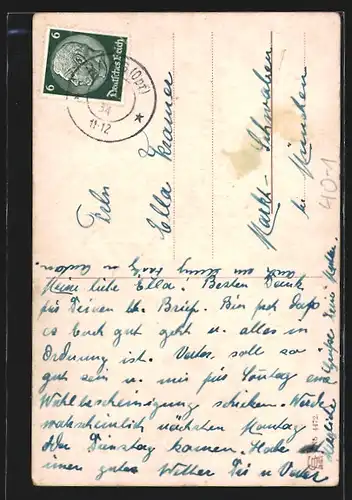 6
6
Deutsches Reich
34
11-12
Frln
Ella Kramer
Markt-Schwaben
b. München
40-1
Meine liebe Ella! Besten Dank
für Deinen lb. Brief. Bin froh daß
es Euch gut geht u. alles in
Ordnung ist. Vater soll so
gut sein u. mir für Sonntag eine
Wahlbescheinigung schicken. Werde
wahrscheinlich nächsten Montag
oder Dienstag kommen. Habe
immer gutes Wetter Dir u Vater
herzliche Grüße
1472